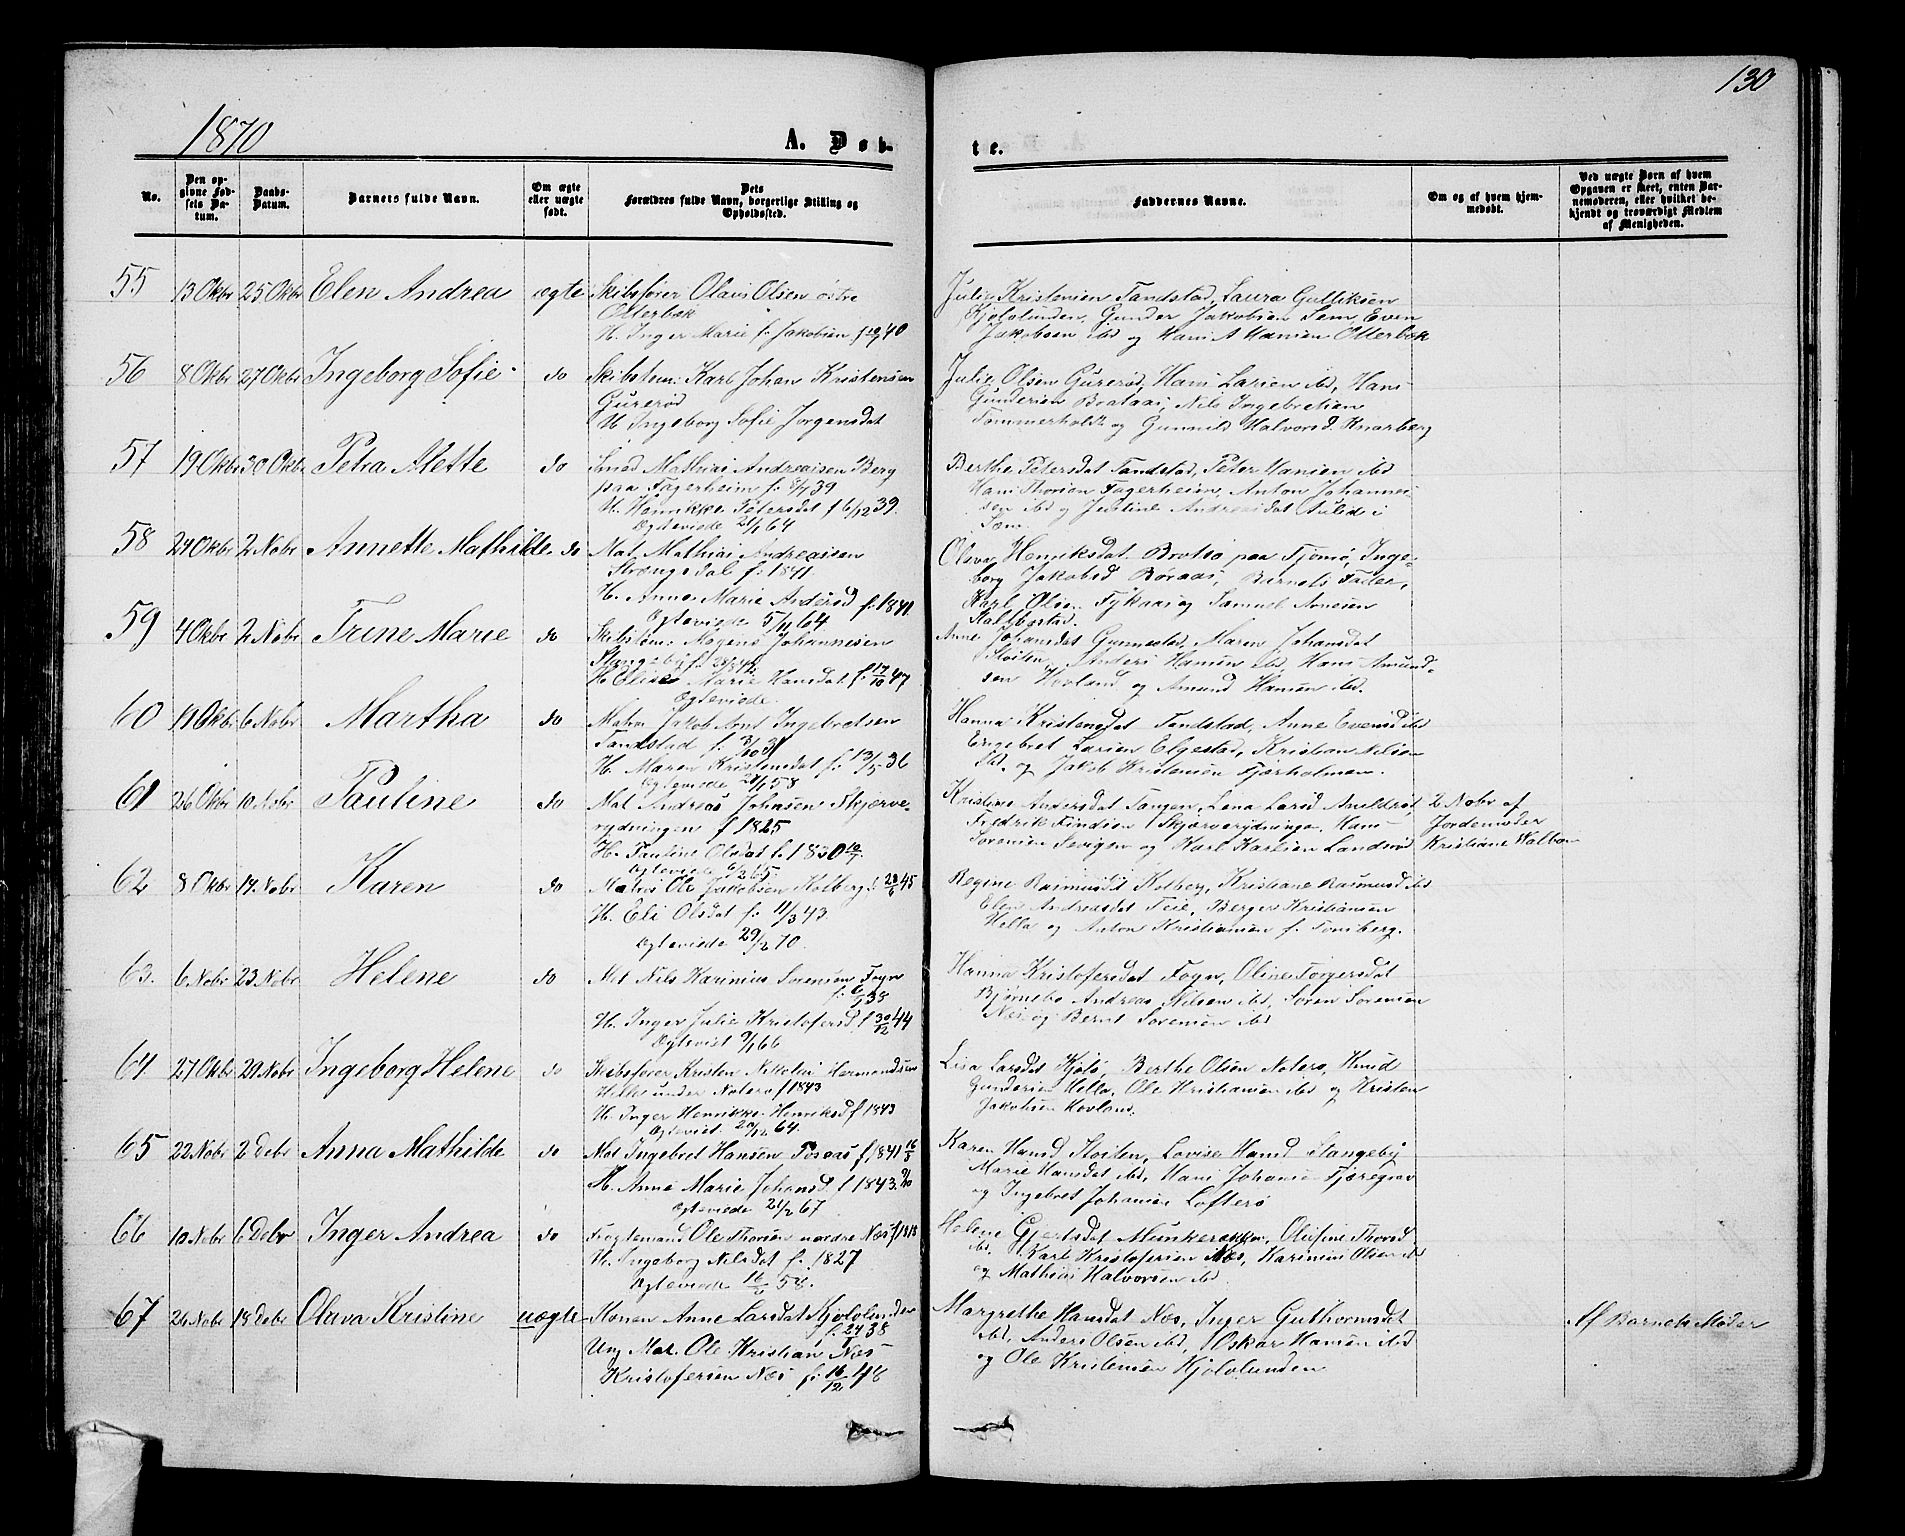 130
1870
A. Døb-
te.
No.
Den op-
givne Fød-
sels Da-
tum.
Daabs-
Datum.
Barnets fulde Navn.
Om ægte
eller uægte
født.
Dets
Forældres fulde Navn, borgerlige Stilling og
Opholdssted.
Faddernes Navne.
Om og af hvem hjem-
medøbt.
Ved uægte Børn af hvem
Opgaven er skeet, enten Bar-
nemoderen, eller hvilket be-
kjendt og troværdigt Medlem
af Menigheden.
55 13 Oktbr 25 Oktbr Elen Andrea ægte Skibsfører Olaus Olsen østre
Otterbæk
H. Inger Marie f. Jakobsen
Julie Kristensen Tandstad, Laura Gulliksen
Kjølolunden, Gunder Jakobsen Sem, Even
Jakobsen ibd og Hans A Hansen Otterbæk
56 8 Oktbr 27 Oktbr Ingeborg Sofie do Skibstøm: Karl Johan Kristensen
Gurerød
H Ingeborg Sofie Jørgensdat
Julie Olsen Gurerød, Hans Larsen ibd, Hans
Gundersen Brataas, Nils Ingebretsen
Tømmerholt og Gunnild Halvorsd. Knarberg
57 19 Oktbr 30 Oktbr Petra Alette do Smed Mathias Andreassen Berg
paa Fagerheim f. 8/7 39
H. Henrikke Petersdat f 6/12 39.
Ægteviede 64
Berthe Petersdat Tandstad, Peter Hansen ibd
Hans Thorsen Fagerheim, Anton Johannes-
sen ibd og Justine Andreasdat Aulie i
Sem
58 24 Oktbr 2 Nobr Annette Mathilde do Mat. Mathias Andreassen
Strængsdal f. 1841.
H. Anne Marie Andersd f. 1841
Ægteviede 5/11 64
Olava Henriksdat Brøtsø paa Tjømø, Inge-
borg Jakobsd Børaas, Barnets Fader,
Karl Olsen Fykaas og Samuel Arnesen
59 4 Oktbr 2 Nobr Trine Marie do Skibstøm: Mogens Johannesen
Stangeby f.
H. Elise Marie Hansdat f. 17/10 47
Ægteviede
Anne Johansdat Gunnestad, Maren Johansdat
Sloiten, Anders Hansen ibd, Hans Amund-
sen Hovland og Amund Hansen ibd.
60 11 Oktbr 6 Nobr Martha do Jakob Ingebretsen
Tandstad f. 3/10 31
H. Maren Kristensdat f. 13/5 36
Ægteviede 58
Hanna Kristensdat Tandstad, Anne Evensd ibd
Engebret Larsen Elgestad, Kristian Nilsen
ibd. og Jakob Kristensen Fjærholmen.
61 26 Oktbr 10 Nobr Pauline do Mat Andreas Johnsen Skjerve-
rydningen f 1825
H. Pauline Olsdat f. 1830
Ægteviede 65.
Kristine Andersdat Tangen, Lena Larsd
Fredrik Findsen Skjerverydningen, Hans
Sorensen og Karl Karlsen
2 Nobr af
Jordemoder
Kristiane
62 8 Oktbr 14. Nobr Karen do Ole Jakobsen Kolberg f. 45
H. Eli Olsdat f. 11/3 43
Ægteviede 29/12 70.
Regine Rasmusdat Kolberg, Kristiane Rasmusd ibd
Elen Andreasdat Teie, Berger Kristiansen
Hella og Anton Kristiansen f. Tønsberg.
63. 6 Nobr 23 Nobr Helene do Mat Nils Karinius Sorensen Fogn
H. Inger Julie Kristofersd f 30/12 44
Ægteviet 66
Hanna Kristofersdat Fogn, Oline Torgersdat
Bjørnebo Andreas Nilsen ibd, Soren Sorensen
Næs og Bernt Sorensen ibd
64 27 Oktbr 29. Nobr Ingeborg Helene do Skibsfører Kristen Nikolai Hermandsen
Hella under Nøtterø f 1843
H. Inger Henrikke Henriksd f 1843
Ægteviet 64.
Lisa Larsdat Kjøle, Berthe Olsen Nøtterø, Knud
Gundersen Hella, Ole Kristiansen ibd og Kristen
Jakobsen Hovland.
65 22 Nobr 2 Debr Anna Mathilde do Mat Ingebret Hansen f. 1841
H. Anne Marie Johansd f 1843.
Ægteviede 67
Karen Hansd Sloiten, Lovise Hansd Stangeby
Marie Hansdat ibd, Hans Johans Fjæregrav
og Ingebret Johansen Lofterø
66 10 Nobr 6 Debr Inger Andrea do Fogtemand Ole Thorsen nordre Næs f 1818
H. Ingeborg Nilsdat f. 1827
Ægteviede 58.
Helene Gjertsdat Munkerekken, Olufine Thorsd
ibd, Karl Kristofersen Næs, Karinius Olsen ibd
og Mathias Halvorsen ibd.
67 26 Nobr 18 Debr Olava Kristine uægte Konen Anne Larsdat Kjølolunden
f. 38
Ung Mat. Ole Kristian Næs
Kristofersen Næs f. 16/12 48
Margrethe Hansdat Næs, Inger Guthormsdat
ibd, Anders Olsen ibd, Oskar Hansen ibd
og Ole Kristensen Kjølolunden
Af Barnets Moder